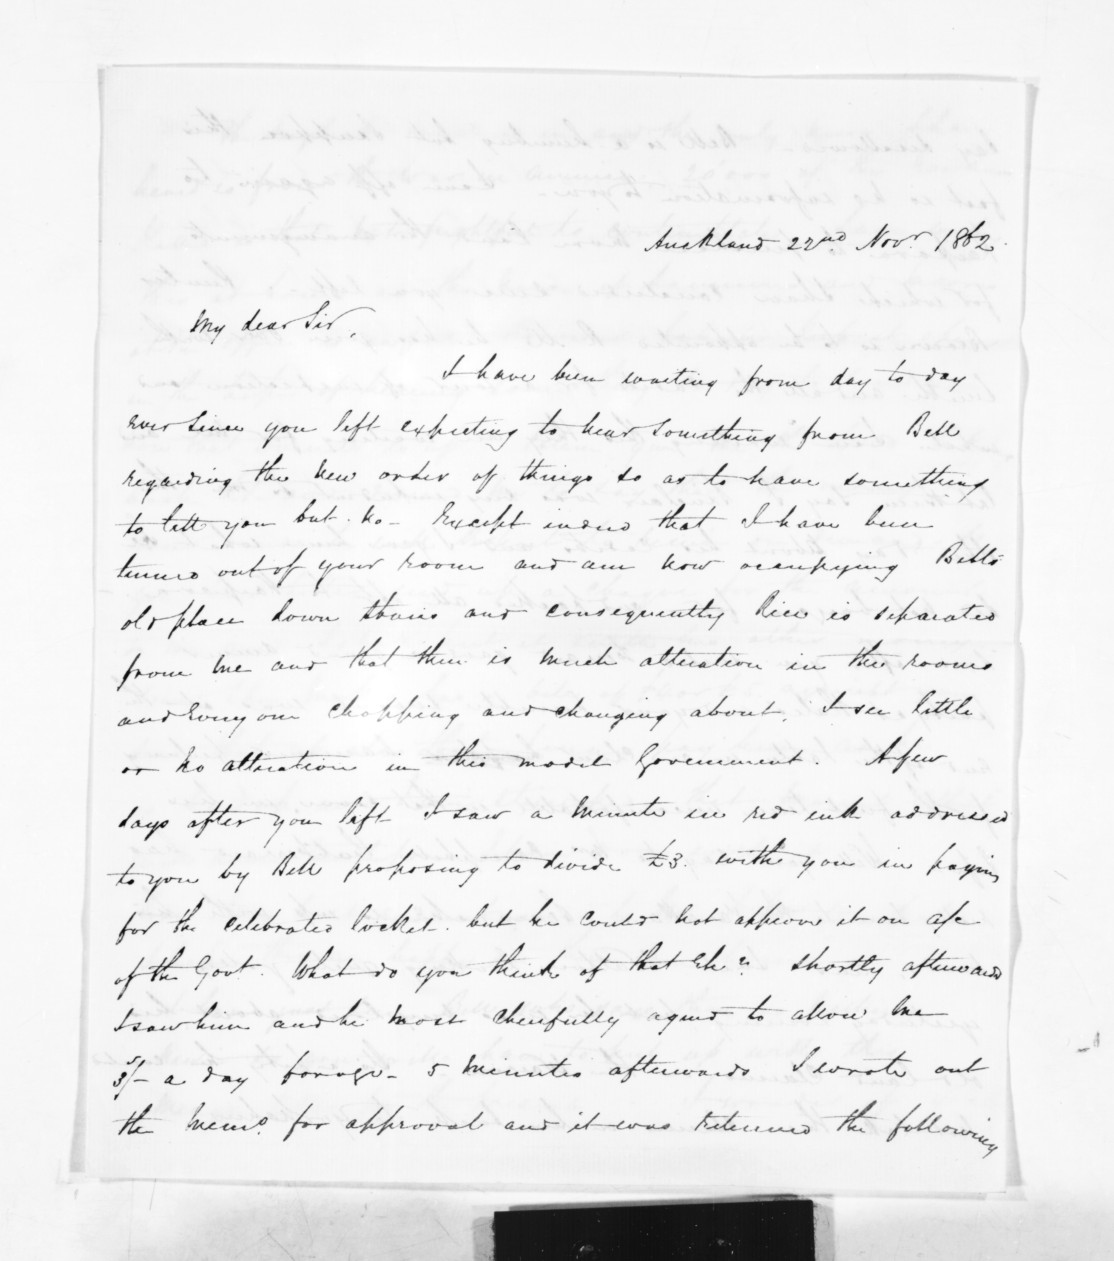 Auckland 22nd Novr. 1862.
My dear Sir,
I have been waiting from day to day
ever since you left expecting to hear something from Bell
regarding the new order of things so as to have something
to tell you but. no - Except indeed that I have been
turned out of your room and am now occupying Bell's
old place down stairs and consequently Rice is separated
from me and that there is much alteration in the rooms
and every one chopping and changing about, I see little
or no alteration in this model Government. A few
days after you left I saw a minute in red ink addressed
to you by Bell proposing to divide £3. with you in paying
for the celebrated locket. but he could not approve it on a/c
of the Govt. What do you think of that Eh? shortly afterwards
I saw him and he most cheerfully agreed to allow me
3/- a day forage - 5 minutes afterwards I wrote out
the memo. for approval and it was returned the following